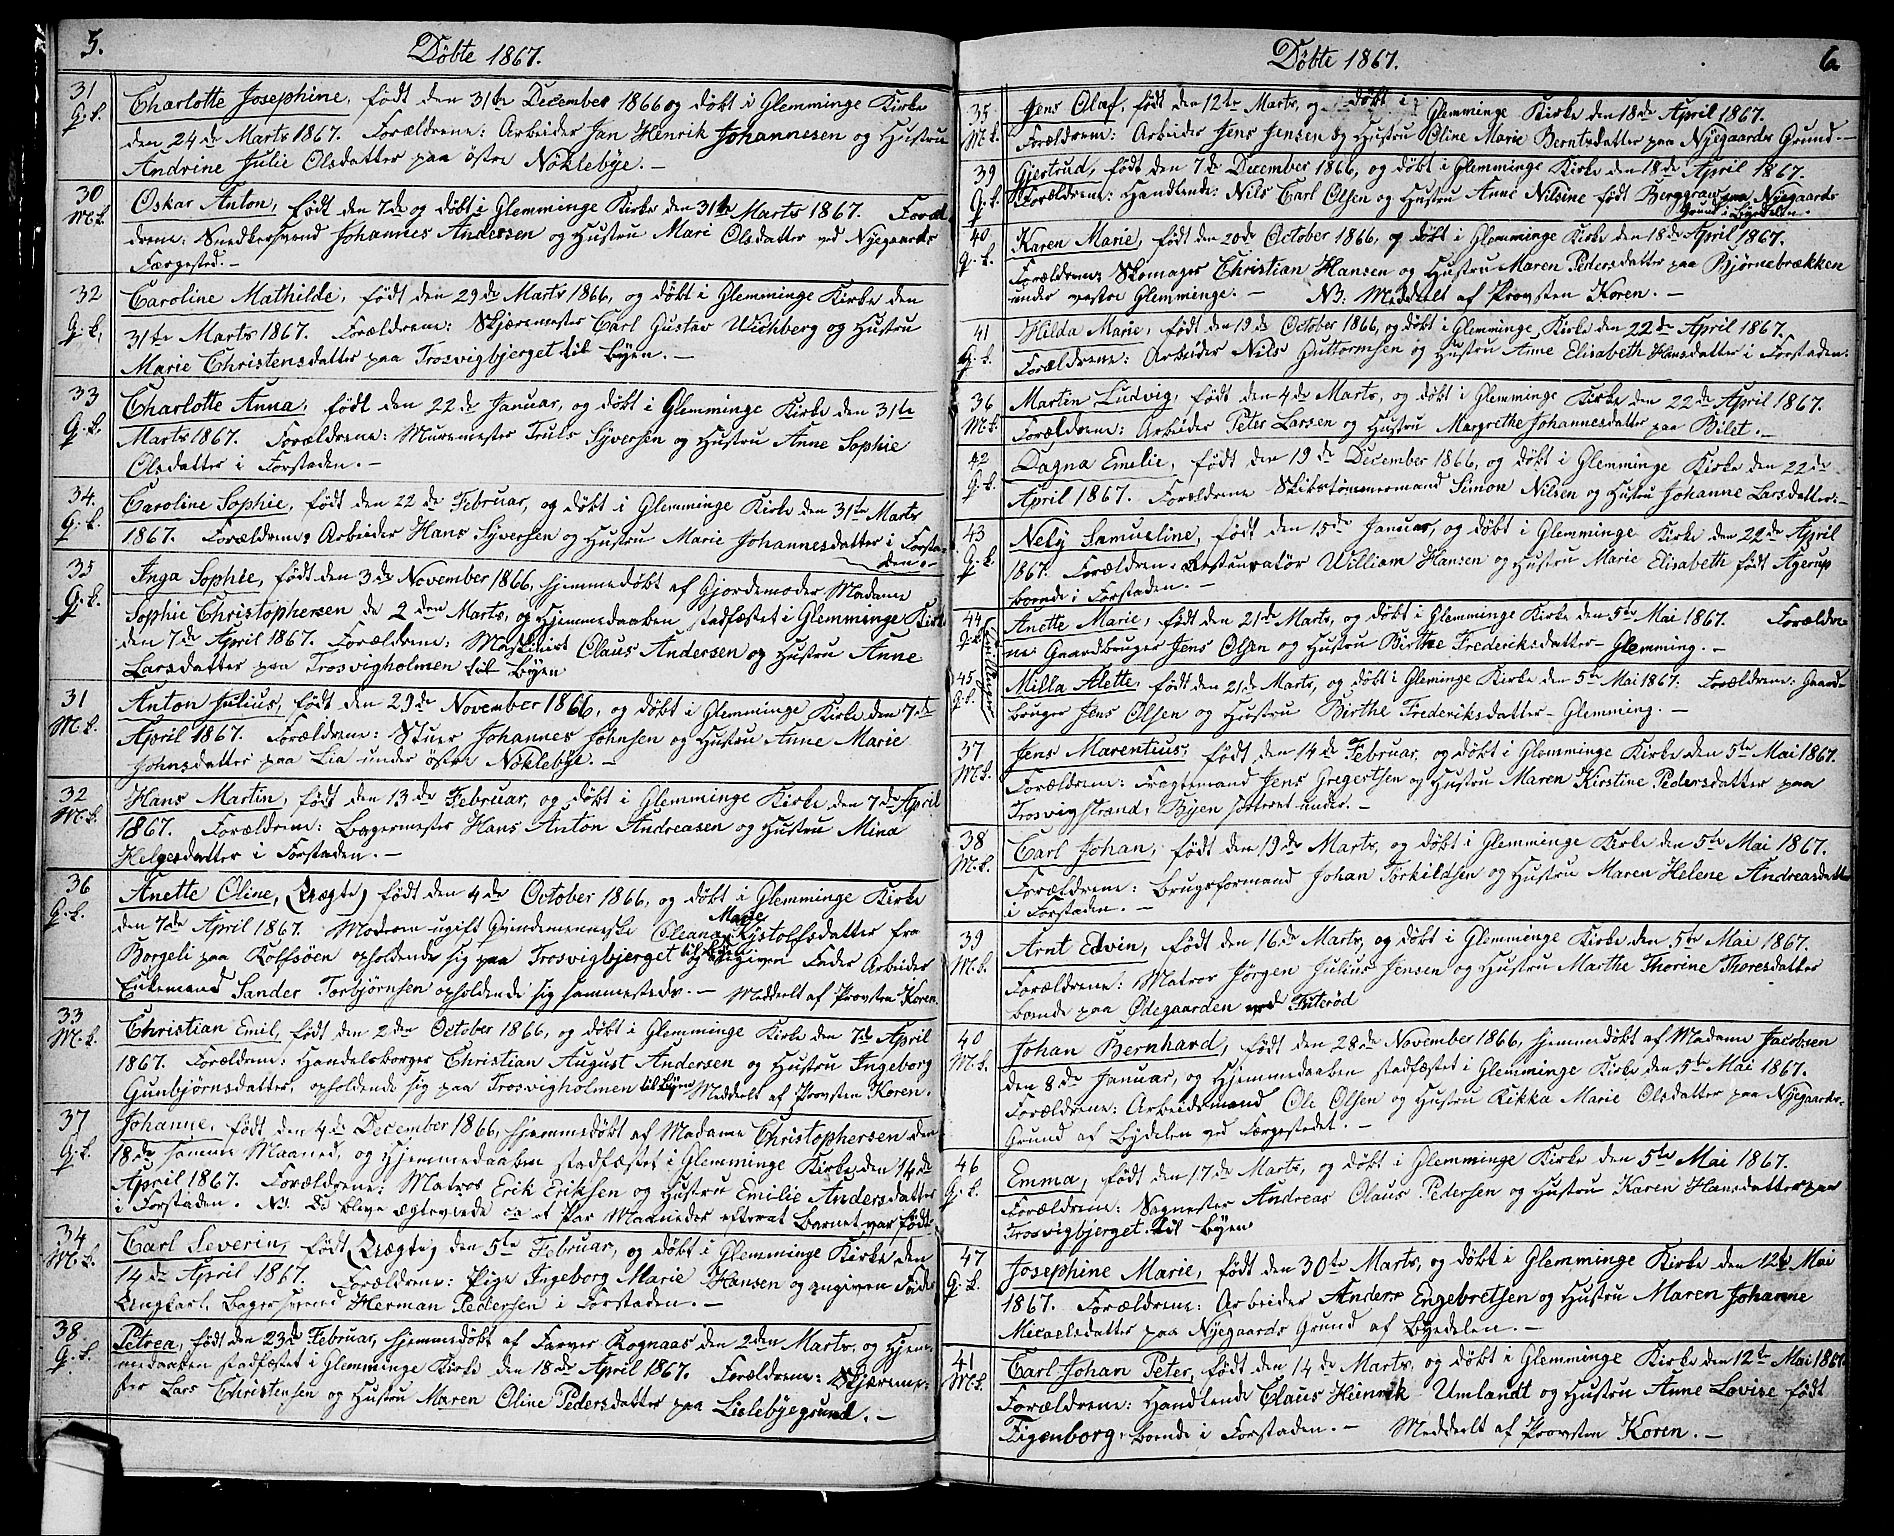 5.
Døbte 1867.
31
Q.k.
Charlotte Josephine, født den 31te December 1866 og døbt i Glemminge Kirke
den 24de Marts 1867. Forældrene: Arbeider Jan Henrik Johannesen og Hustru
Andrine Julie Olsdatter paa østre Nøklebye.-
30
M.k.
Oskar Anton, født den 7de og døbt i Glemminge Kirke den 31te Marts 1867. Foræl
drene: Snedkersvend Johannes Andersen og Hustru Mari Olsdatter ved Nyegaards
Færgested.-
32
Q.k.
Caroline Mathilde, født den 29de Marts 1866, og døbt i Glemminge Kirke den
31te Marts 1867. Forældrene: Skjæremester Carl Gustav Wichberg og Hustru
Marie Christensdatter paa Trosvigbjerget til Byen.-
33
Q.k.
Charlotte Anna, født den 22de Januar, og døbt i Glemminge Kirke den 31te
Marts 1867. Forældrene: Muremester Truls Syversen og Hustru Anne Sophie
Olsdatter i Forstaden.-
34.
Q.k.
Caroline Sophie, født den 22de Februar, og døbt i Glemminge Kirke den 31te Marts
1867. Forældrene: Arbeider Hans Syversen og Hustru Marie Johannesdatter i Forsta-
den.-
35
Q.k.
Inga Sophie, født den 3de November 1866, hjemmedøbt af Gjordemoder Madame
Sophie Christophersen de 2den Marts, og Hjemmedaaben stadfæstet i Glemminge Kirke
den 7de April 1867. Forældrene: Maskinist Claus Andersen og Hustru Anne
Larsdatter paa Trosvigholmen til Byen
31
M.k.
Anton Julius, født den 29de November 1866, og døbt i Glemminge Kirke den 7de
April 1867. Forældrene: Stuer Johannes Johnsen og Hustru Anne Marie
Johnsdatter paa Lia under østre Nøklebye.-
32
M.k.
Hans Martin, født den 13de Februar, og døbt i Glemminge Kirke den 7de April
1867. Forældrene: Bagermester Hans Anton Andreasen og Hustru Mina
Helgesdatter i Forstaden.-
36
Q.k.
Anette Oline, (Uægte) født den 4de October 1866, og døbt i Glemminge Kirke
den 7de April 1867. Moderen ugift Qvindemenneske Oleana Marie Kystolfsdatter fra
Borgeli paa Rolfsøen opholdende sig paa Trosvigbjerget til Byen og angiven Fader Arbeider
Enkemand Sander Torbjørnsen opholdende sig sammesteds.- Meddelt af Provsten Koren.
33
M.k.
Christian Emil, født den 2den October 1866, og døbt i Glemminge Kirke den 7de April
1867. Forældrene: Handelsborger Christian August Andersen og Hustru Ingeborg
Gunbjørnsdatter, opholdende sig paa Trosvigholmen til Byen Meddelt af Provsten Koren.
37
Q.k.
Johanne, født den 4de December 1866, hjemmedøbt af Madame Christophersen den
18de samme Maaned, og Hjemmedaaben stadfæstet i Glemminge Kirke den 14de
April 1867. Forældrene: Matros Erik Eriksen og Hustru Emilie Andersdatter
i Forstaden. NB. De bleve ægteviede et Par Maaneder efterat Barnet var født.
34
M.k.
Carl Severin, født (Uægte) den 5te Februar, og døbt i Glemminge Kirke den
14de April 1867. Forældrene: Pige Ingeborg Marie Hansen og angiven Fader
Ungkarl, Bagersvend Herman Pedersen i Forstaden.-
38.
Q.k.
Petrea, født den 23de Februar, hjemmedøbt af Farver Rognaas den 2den Marts, og Hjem-
medaaben stadfæstet i Glemminge Kirke den 18de April 1867. Forældrene: Skjæreme-
ster Lars Christensen og Hustru Maren Oline Pedersdatter paa Lislebyegrund.-
6
Døbte 1867.
35
M.k.
Jens Olaf, født den 12te Marts, og døbt i Glemminge Kirke den 18de April 1867.
Forældrene: Arbeider Jens Jensen og Hustru Oline Marie Berntsdatter paa Nyegaards Grund.-
39
Q.k.
Gjertrud, født den 7de December 1866, og døbt i Glemminge Kirke den 18de April 1867.
Forældrene: Handlende: Nils Carl Olsen og Hustru Anne Nilsine født Berggrav paa Nyegaards
Grund i Bydelen.
40
Q.k.
Karen Marie, født den 20de October 1866, og døbt i Glemminge Kirke den 18de April 1867.
Forældrene: Skomager Christian Hansen og Hustru Maren Pedersdatter paa Bjørnebrækken
under vestre Glemminge.- NB: Meddelt af Provsten Koren.-
41
Q.k.
Hilda Marie, født den 19de October 1866, og døbt i Glemminge Kirke den 22de April 1867.
Forældrene: Arbeider Nils Guttormsen og Hustru Anne Elisabeth Hansdatter i Forstaden:
36
M.k.
Martin Ludvig, født den 4de Marts, og døbt i Glemminge Kirke den 22de April 1867.
Forældrene: Arbeider Peter Larsen og Hustru Margrethe Johannesdatter paa Bilet.-
42
Q.k.
Dagna Emelie, født den 19de December 1866, og døbt i Glemminge Kirke den 22de
April 1867. Forældrene Skibstømmermand Simon Nilsen og Hustru Johanne Larsdatter:-
43
Q.k.
Nely Samueline, født den 15de Januar, og døbt i Glemminge Kirke den 22de April
1867. Forældrene: Restauratør William Hansen og Hustru Marie Elisabeth født Agerup
boende i Forstaden.-
44
Q.k.
Anette Marie, født den 21de Marts, og døbt i Glemminge Kirke den 5te Mai 1867. Forældre-
ne Gaardbruger Jens Olsen og Hustru Birthe Frederiksdatter- Glemming.-
45
Q.k.
Milla Alette, født den 21de Marts, og døbt i Glemminge Kirke den 5te Mai 1867. Forældrene: Gaard-
bruger Jens Olsen og Hustru Birthe Frederiksdatter- Glemming.-
37
M.k.
Jens Marentius, født den 14de Februar, og døbt i Glemminge Kirke den 5te Mai 1867.
Forældrene: Fragtemand Jens Gregertsen og Hustru Maren Kirstine Pedersdatter paa
Trosvigstrand, Byen sorterende under.-
38
M.k.
Carl Johan, født den 19de Marts, og døbt i Glemminge Kirke den 5te Mai 1867.
Forældrene: Brugsformand Johan Torkildsen og Hustru Maren Helene Andreasdatter
i Forstaden.-
39
M.k.
Arnt Edvin, født den 16de Marts, og døbt i Glemminge Kirke den 5te Mai 1867.
Forældrene: Matros Jørgen Julius Jensen og Hustru Marthe Thorine Thoresdatter
boende paa Ødegaarden ved
40
M.k.
Johan Bernhard, født den 28de November 1866, hjemmedøbt af Madame Jacobsen
den 8de Januar, og Hjemmedaaben stadfæstet i Glemminge Kirke den 5te Mai 1867.
Forældrene: Arbeidsmand Ole Olsen og Hustru Rikka Marie Olsdatter paa Nyegaards-
Grund af Bydelen ved Færgestedet.-
46
Q.k.
Emma, født den 17de Marts, og døbt i Glemminge Kirke den 5te Mai 1867.
Forældrene: Sagmester Andreas Claus Pedersen og Hustru Karen Hansdatter paa
Trosvigbjerget til Byen
47
Q.k.
Josephine Marie, født den 30te Marts, og døbt i Glemminge Kirke den 12te Mai
1867. Forældrene: Arbeider Anders Engebretsen og Hustru Maren Johanne
Micaelsdatter paa Nyegaards Grund af Byedelen.-
41
M.k.
Carl Johan Peter, født den 14de Marts, og døbt i Glemminge Kirke den 12te Mai 1867.
Forældrene: Handlende Claus Hinrik Umlandt og Hustru Anne Lovise født
Figenborg, boende i Forstaden.- Meddelt af Provsten Koren.-